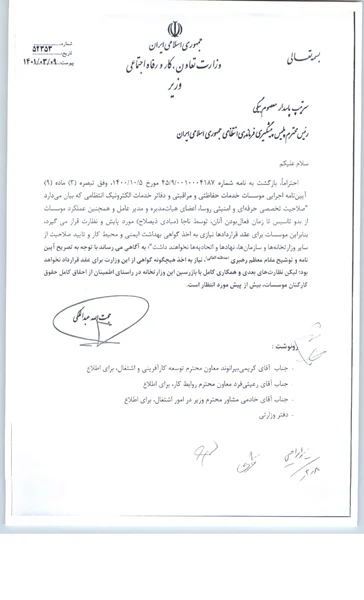 بسمه تعالی
جمهوری اسلامی ایران
وزارت تعاون، کار و رفاه اجتماعی
وزیر
شماره: ۵۴۲۵۳
تاریخ: ۱۴۰۱/۰۳/۰۹
پیوست:
سرتیپ پاسدار معصوم بیگی
رئیس محترم پلیس پیشگیری فرماندهی انتظامی جمهوری اسلامی ایران
سلام علیکم
احتراماً، بازگشت به نامه شماره ۴۵/۹/۰۰۱۰۰۰۴۱۸۷ مورخ ۱۴۰۰/۱۰/۵، وفق تبصره (۳) ماده (۹)
آیین‌نامه اجرایی موسسات خدمات حفاظتی و مراقبتی و دفاتر خدمات الکترونیک انتظامی که بیان می‌دارد
"صلاحیت تخصصی حرفه‌ای و امنیتی روسا، اعضای هیات‌مدیره و مدیر عامل و همچنین عملکرد موسسات
از بدو تاسیس تا زمان فعال‌بودن آنان، توسط ناجا (مبادی ذیصلاح) مورد پایش و نظارت قرار می گیرد،
بنابراین موسسات برای عقد قراردادها نیازی به اخذ گواهی بهداشت ایمنی و محیط کار و تایید صلاحیت از
سایر وزارتخانه‌ها و سازمان‌ها، نهادها و اتحادیه‌ها نخواهند داشت"، به آگاهی می رساند با توجه به تصریح آیین
نامه و توشیح مقام معظم رهبری، نیاز به اخذ هیچگونه گواهی از این وزارت برای عقد قرارداد نخواهد
بود؛ لیکن نظارت‌های بعدی و همکاری کامل با بازرسین این وزارتخانه در راستای اطمینان از احقاق کامل حقوق
کارکنان موسسات، بیش از پیش مورد انتظار است.
حجت اله عبدالملکی
رونوشت:
- جناب آقای کریمی‌بیرانوند معاون محترم توسعه کارآفرینی و اشتغال، برای اطلاع
- جناب آقای رعیتی‌فرد معاون محترم روابط کار، برای اطلاع
- جناب آقای خادمی مشاور محترم وزیر در امور اشتغال، برای اطلاع
- دفتر وزارتی